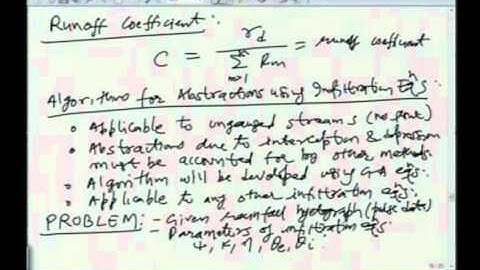 Runoff Coefficient:
C = r_d / Σ_{m=1} R_m = runoff coefficient
Algorithms for Abstractions using Infiltration Eqⁿs:
• Applicable to ungauged streams
• Abstractions due to interception & depression
must be accounted for by other methods.
• Algorithm will be developed using G-A eqⁿs.
• Applicable to any other infiltration eqⁿs.
PROBLEM: - Given rainfall hyetograph (pulse data)
- Parameters of infiltration eqⁿs:
ψ, K, η, θe, θi